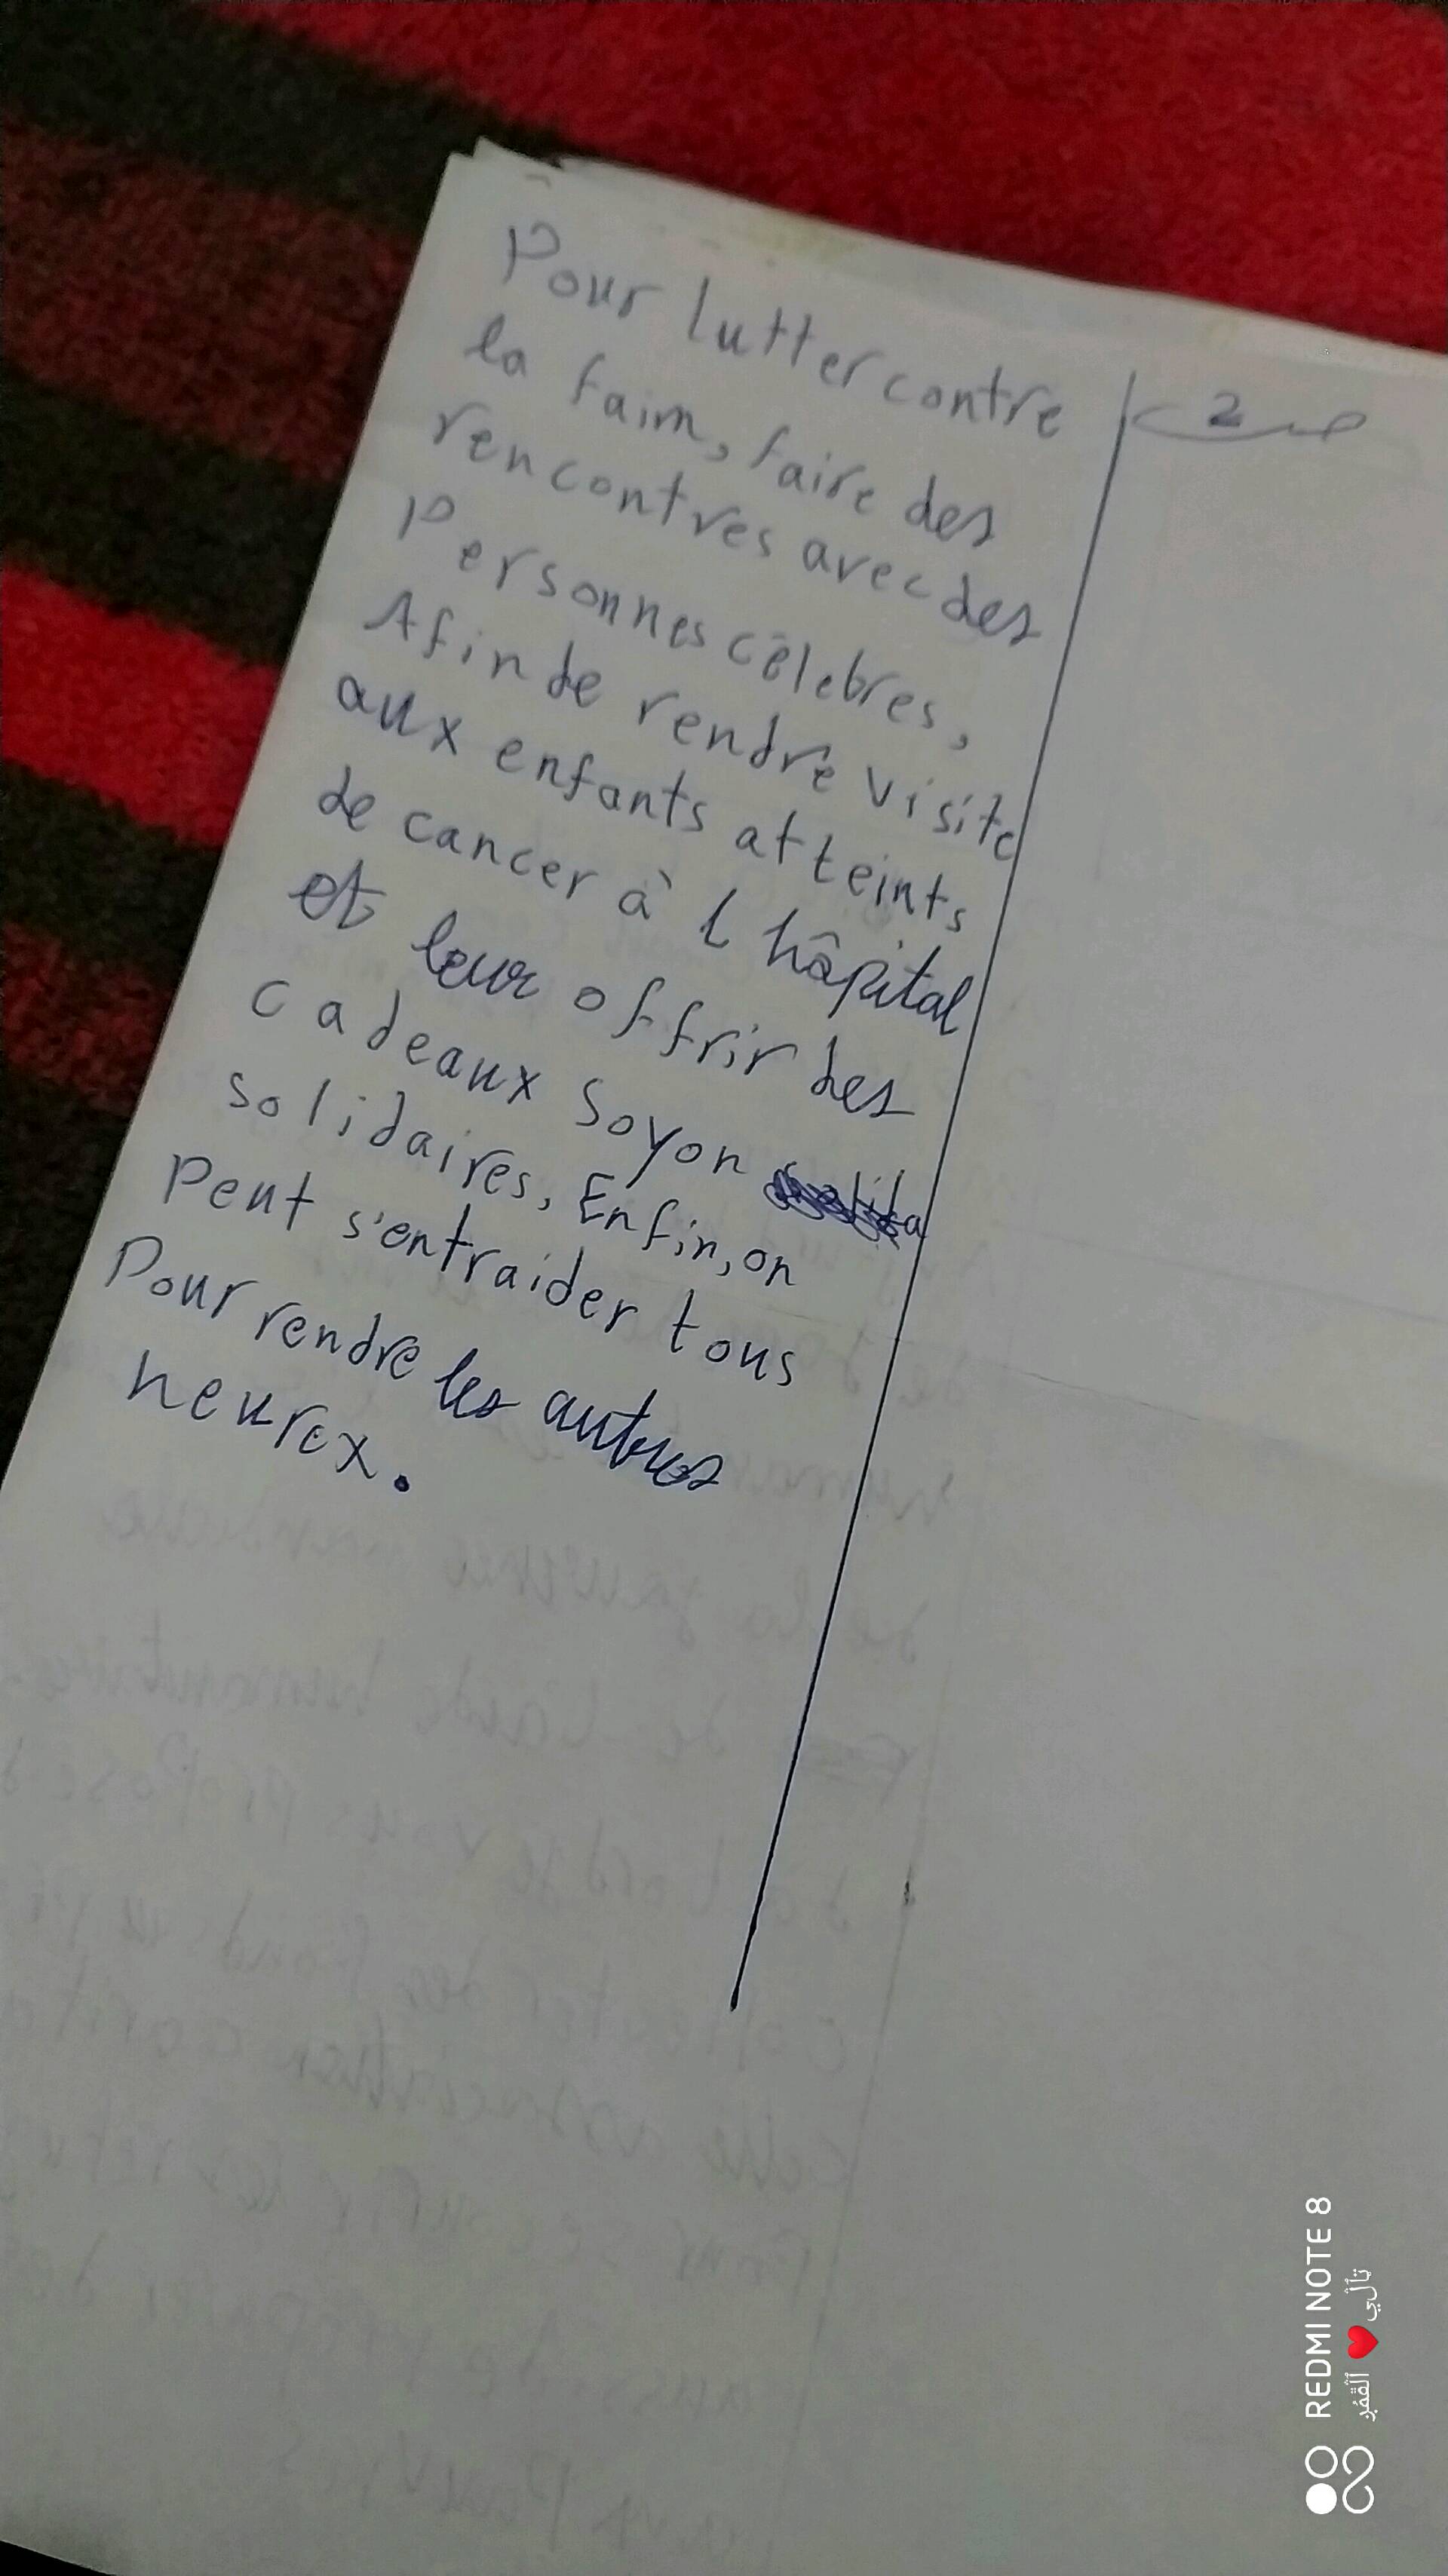 Pour lutter contre
la faim, faire des
rencontres avec des
Personnes célebres,
Afin de rendre visite
aux enfants atteints
de cancer à l hôpital
et leur offrir des
cadeaux soyon
solidaires, Enfin, on
Peut s'entraider tous
Pour rendre les autres
heurex.
2
REDMI NOTE 8